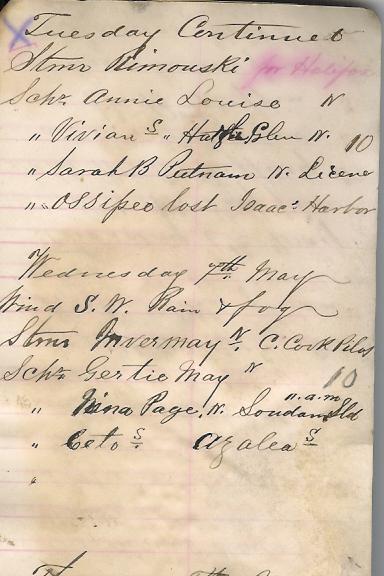 Tuesday Continued
Stmr Rimouski for Halifax
Schr Annie Louise N
" Vivian S " Glen N. 10
" Sarah B Putnam N. Licene
" Ossipee lost Isaacs Harbor
Wednesday 7th May
Wind S. W. Rain & fog
Stmr Invermay N. C. Cook Pilot
Schr Gertie May N 10
" Nina Page, N. Soudan Sld
n.a.m
" Ceto S Azalea S
"